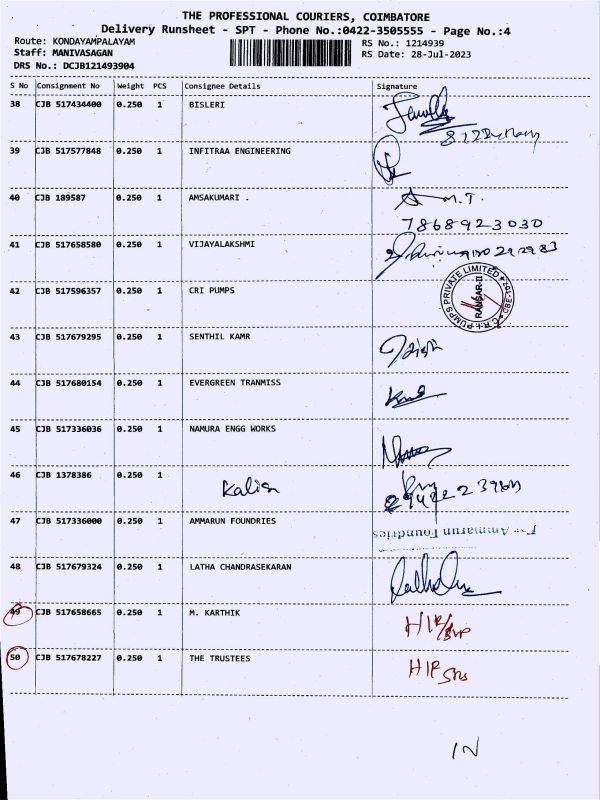 THE PROFESSIONAL COURIERS, COIMBATORE
Delivery Runsheet - SPT - Phone No.:0422-3505555 - Page No.:4
Route: KONDAYAMPALAYAM
Staff: MANIVASAGAN
DRS No.: DCJB121493904
RS No.: 1214939
RS Date: 28-Jul-2023
S No Consignment No Weight PCS Consignee Details Signature
38 CJB 517434400 0.250 1 BISLERI
39 CJB 517577848 0.250 1 INFITRAA ENGINEERING
40 CJB 189587 0.250 1 AMSAKUMARI . M.T.
7868923030
41 CJB 517658580 0.250 1 VIJAYALAKSHMI
42 CJB 517596357 0.250 1 CRI PUMPS
C.R.I. PUMPS PRIVATE LIMITED
43 CJB 517679295 0.250 1 SENTHIL KAMR
44 CJB 517680154 0.250 1 EVERGREEN TRANMISS
45 CJB 517336036 0.250 1 NAMURA ENGG WORKS
46 CJB 1378386 0.250 1
47 CJB 517336000 0.250 1 AMMARUN FOUNDRIES For Ammarun Foundries
48 CJB 517679324 0.250 1 LATHA CHANDRASEKARAN
49 CJB 517658665 0.250 1 M. KARTHIK
50 CJB 517678227 0.250 1 THE TRUSTEES
IN